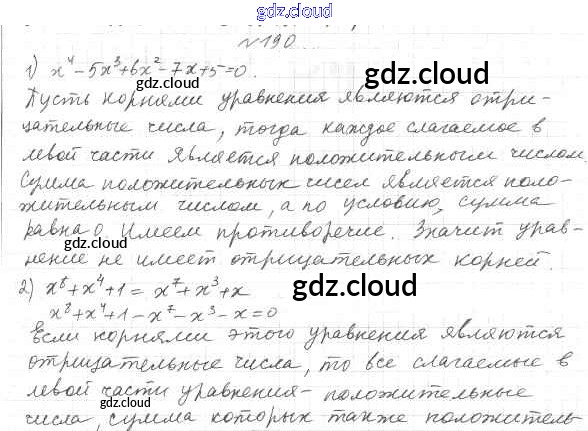 gdz.cool
№190.
1) x⁴ - 5x³ + 6x² - 7x + 5 = 0.
gdz.cool
Пусть корнями уравнения являются отри-
цательные числа, тогда каждое слагаемое в
левой части является положительным числом.
Сумма положительных чисел является поло-
жительным числом, а по условию, сумма
равна 0. Имеем противоречие. Значит урав-
gdz.cool
нение не имеет отрицательных корней.
2) x⁸ + x⁴ + 1 = x⁷ + x³ + x
gdz.cool
x⁸ + x⁴ + 1 - x⁷ - x³ - x = 0
Если корнями этого уравнения являются
отрицательные числа, то все слагаемые в
левой части уравнения - положительные
gdz.cool
числа, сумма которых также положитель